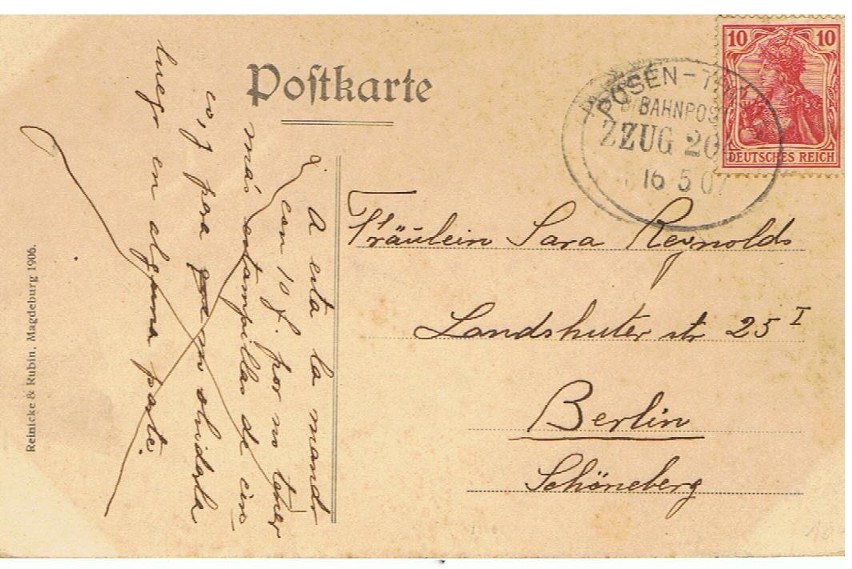 Postkarte
10 10
DEUTSCHES REICH
POSEN - TH
BAHNPOS
ZUG 20
16 5 07
Fräulein Sara Reynolds
Landshuter str 25 I
Berlin
Schöneberg
A esta la mandé
con 10 f. por no tener
más estampillas de cin
co, y para no olvidarla
luego en alguna parte.
Reinicke & Rubin, Magdeburg 1906.